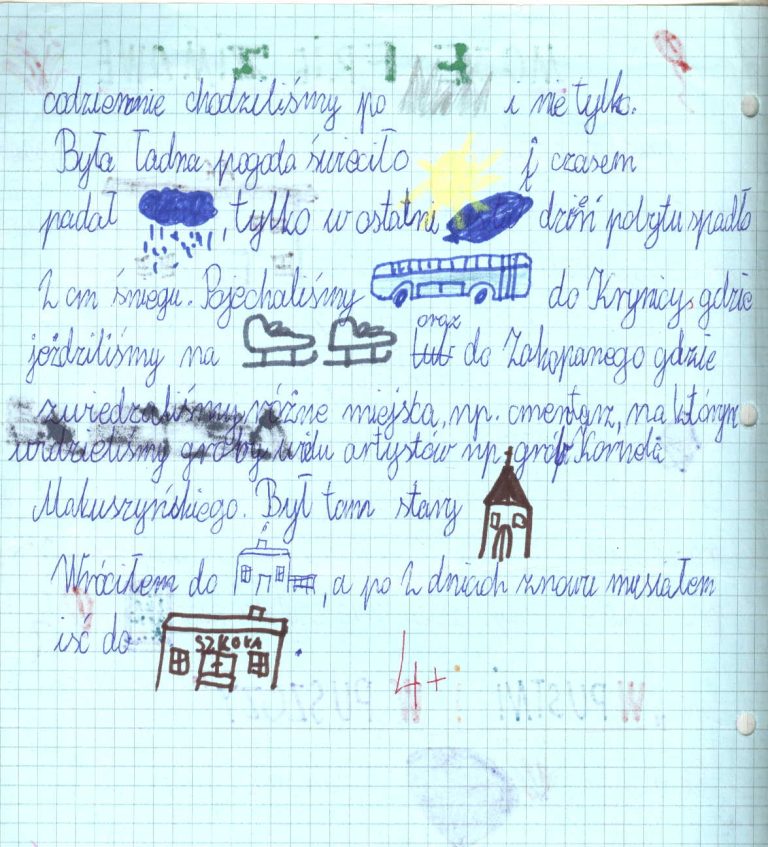 codziennie chodziliśmy po i nie tylko.
Była ładna pogoda świeciło i czasem
padał , tylko w ostatni dzień pobytu spadło
2 cm śniegu. Pojechaliśmy do Krynicy, gdzie
oraz
jeździliśmy na lub do Zakopanego gdzie
zwiedzaliśmy różne miejska, np. cmentarz, na którym
widzieliśmy groby wielu artystów np. grób Kornela
Makuszyńskiego. Był tam stary
Wróciłem do , a po 2 dniach znowu musiałem
iść do SZKOŁA .
4+